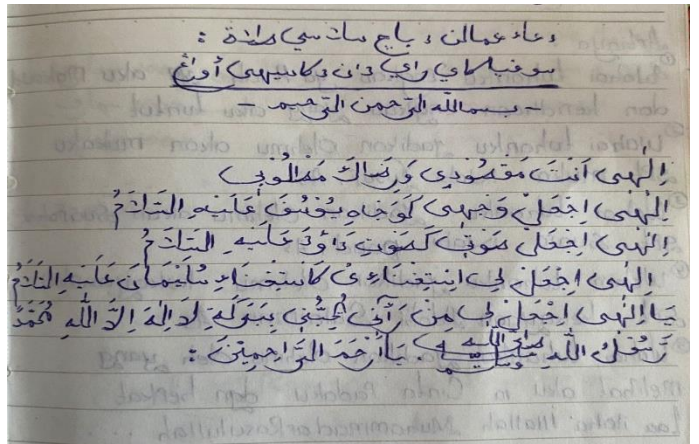 دعاء عمالن دباچ صلاة :
دان دكاسيهي أورڠ
- بسم الله الرحمن الرحيم -
اِلٰهِى اَنْتَ مَقْصُوْدِى وَرِضَاكَ مَطْلُوْبِى
اِلٰهِى اِجْعَلْ وَجْهِى كَوَجْهِ يُوْسُفَ عَلَيْهِ السَّلَامُ
اِلٰهِى اِجْعَلْ صَوْتِى كَصَوْتِ دَاوُدَ عَلَيْهِ السَّلَامُ
اِلٰهِى اِجْعَلْ لِى اِسْتِغْنَاءِى كَاسْتِغْنَاءِ سُلَيْمَانَ عَلَيْهِ السَّلَامُ
يَا اِلٰهِى اِجْعَلْ لِى مَنْ رَآنِى يُحِبُّنِى بِبَرَكَةِ لَا اِلٰهَ اِلَّا اللّٰهِ مُحَمَّدٌ
رَسُوْلُ اللّٰهِ صلى الله عليه وسلم يَا اَرْحَمَ الرَّاحِمِيْنَ :